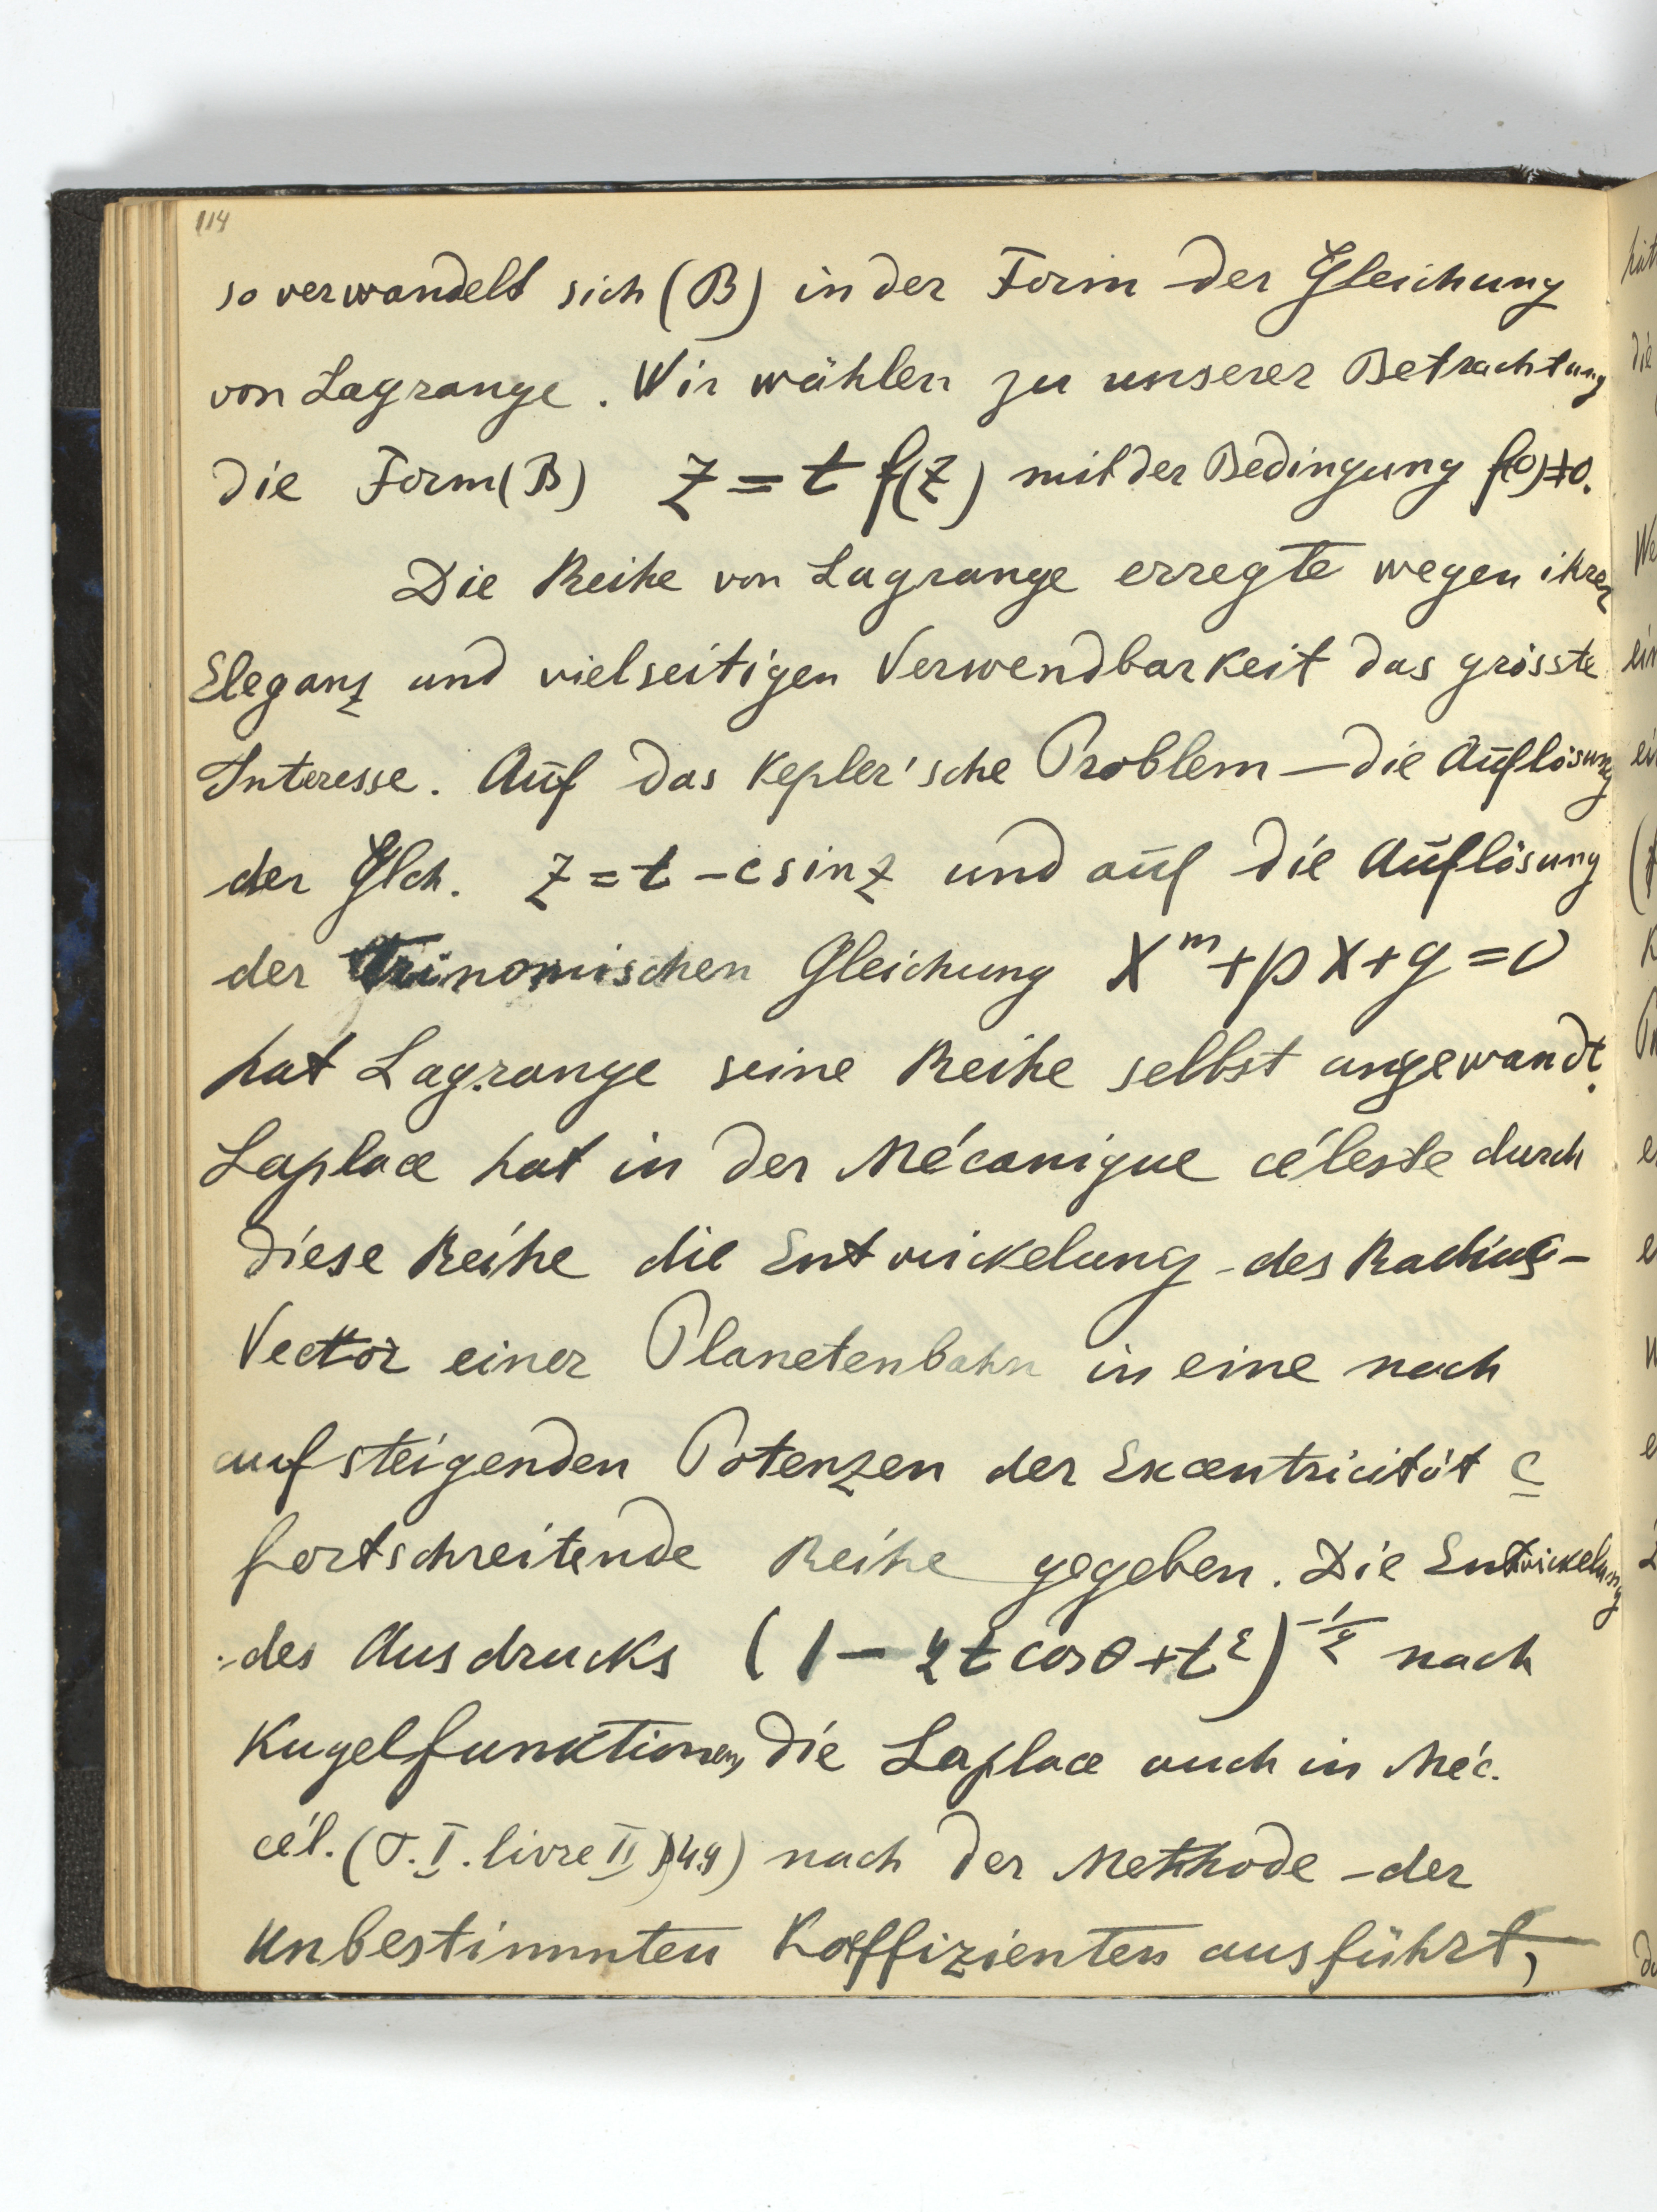 114
so verwandelt sich (B) in der Form der Gleichung
von Lagrange. Wir wählen zu unserer Betrachtung
die Form (B) z = t f(z) mit der Bedingung f(0)≠0.
Die Reihe von Lagrange erregte wegen ihrer
Eleganz und vielseitigen Verwendbarkeit das grösste
Interesse. Auf das Kepler'sche Problem – die Auflösung
der Glch. z = t – c sin z und auf die Auflösung
der trinomischen Gleichung x^m + px + q = 0
hat Lagrange seine Reihe selbst angewandt.
Laplace hat in der Mécanique céleste durch
diese Reihe die Entwickelung des Radius-
Vector einer Planetenbahn in eine nach
aufsteigenden Potenzen der Excentricität c
fortschreitende Reihe gegeben. Die Entwickelung
des Ausdrucks (1 – 2t cos θ + t²)^-1/2 nach
Kugelfunktionen, die Laplace auch in Méc.
cél. (T. I. livre II) nach der Methode der
unbestimmten Koeffizienten ausführt,